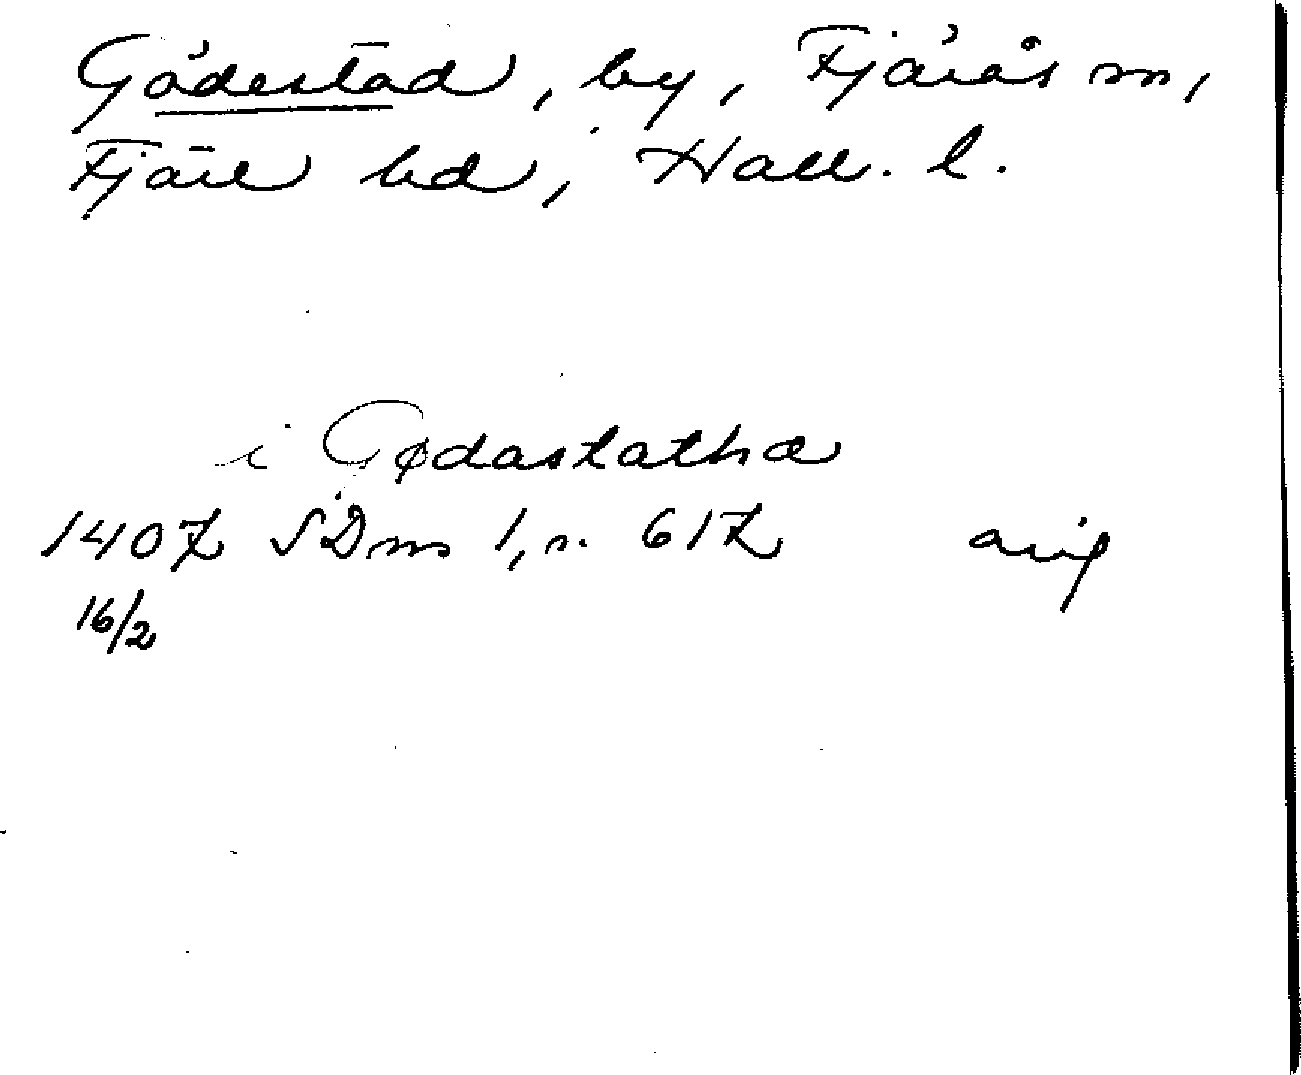 Gödestad, by, Fjärås sn,
Fjäre hd, Hall. l.
i Gødastathæ
1407 SDns 1, s. 617 avig
16/2